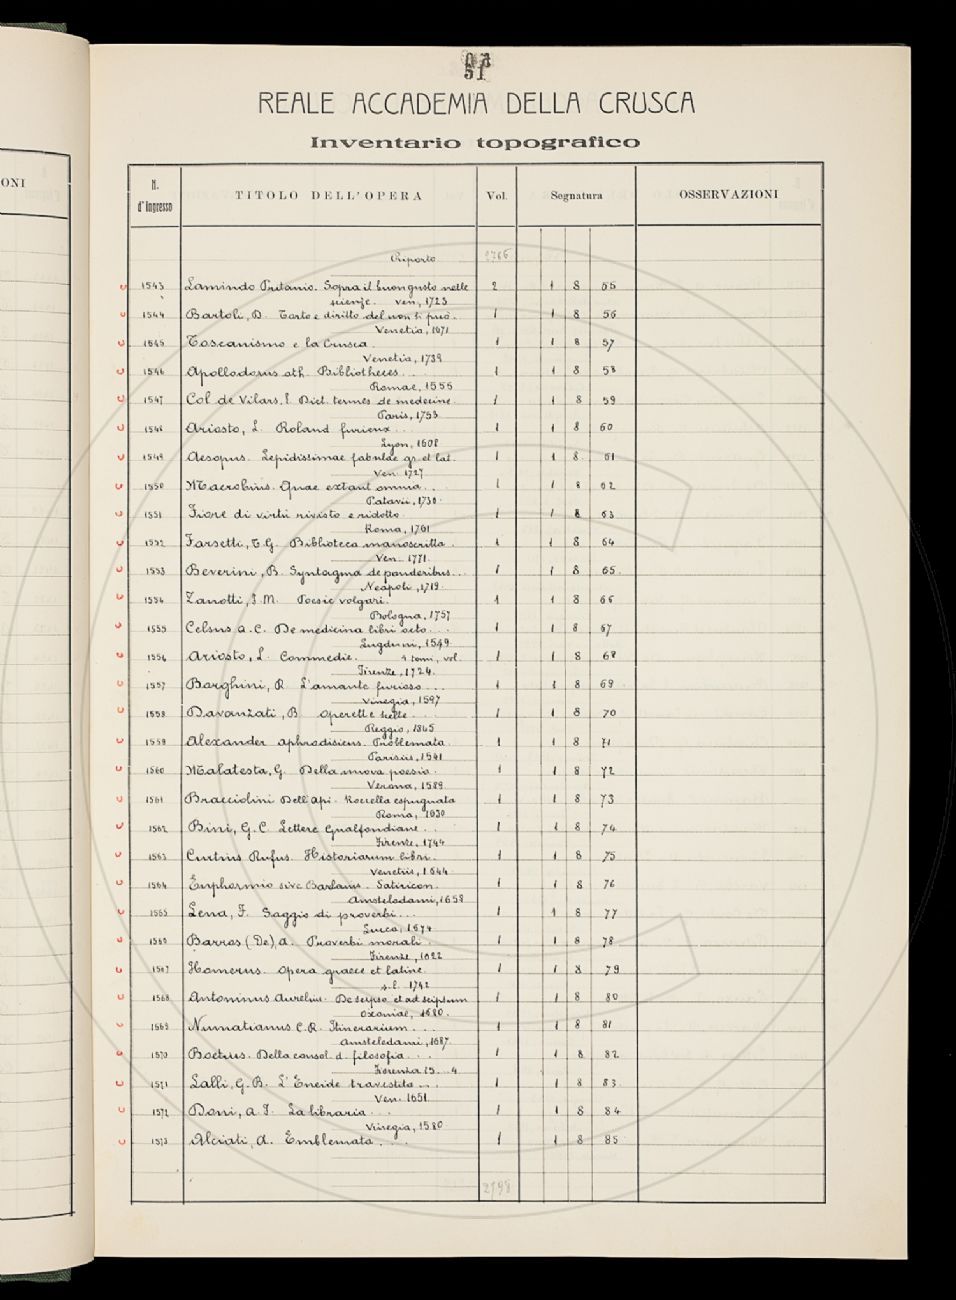 ONI
51
REALE ACCADEMIA DELLA CRUSCA
Inventario topografico
N. d'Ingresso TITOLO DELL'OPERA Vol. Segnatura OSSERVAZIONI
Riporto 2766
1543 Lamindo Pritanio. Sopra il buon gusto nelle 2 1 8 55
scienze. Ven, 1723
1544 Bartoli, D. Torto e diritto del non si può. 1 1 8 56
Venetia, 1671
1545 Toscanismo e la Crusca. 1 1 8 57
Venetia, 1739
1546 Apollodorus ath. Bibliotheces... 1 1 8 58
Romae, 1555
1547 Col de Vilars, E. Dict. termes de medecine. 1 1 8 59
Paris, 1753
1548 Ariosto, L. Roland furieux... 1 1 8 60
Lyon, 1608
1549 Aesopus. Lepidissimae fabulae gr. et lat. 1 1 8 61
Ven. 1727
1550 Macrobius. Quae extant omnia... 1 1 8 62
Patavii, 1736.
1551 Fiore di virtù rivisto e ridotto 1 1 8 63
Roma, 1761
1552 Farsetti, T. G. Biblioteca manoscritta. 1 1 8 64
Ven. 1771.
1553 Beverini, B. Syntagma de ponderibus... 1 1 8 65.
Neapoli, 1719.
1554 Zanotti, F. M. Poesie volgari. 1 1 8 66
Bologna, 1757
1555 Celsus A. C. De medicina libri octo... 1 1 8 67
Lugduni, 1549.
1556 Ariosto, L. Commedie. 4 tomi, vol. 1 1 8 68
Firenze, 1724.
1557 Borghini, R. L'amante furioso... 1 1 8 69
Vinegia, 1597
1558 Davanzati, B. Operette scelte... 1 1 8 70
Reggio, 1845
1559 Alexander aphrodisicus. Problemata. 1 1 8 71
Parisiis, 1541
1560 Malatesta, G. Della nuova poesia. 1 1 8 72
Verona, 1589.
1561 Bracciolini Dell'Api. Roccella espugnata 1 1 8 73
Roma, 1630
1562 Bini, G. C. Lettere Gualfondiane... 1 1 8 74
Firenze, 1744
1563 Curtius Rufus. Historiarum libri. 1 1 8 75
Venetiis, 1644.
1564 Euphormio sive Barlaius. Satiricon. 1 1 8 76
Amstelodami, 1658
1565 Lena, F. Saggio di proverbi... 1 1 8 77
Lucca, 1674
1566 Barros (De), A. Proverbi morali. 1 1 8 78
Firenze, 1622
1567 Homerus. Opera graece et latine. 1 1 8 79
s. l. 1742
1568 Antoninus Aurelius. De seipso et ad seipsum 1 1 8 80
Oxoniae, 1680.
1569 Numatianus C. R. Itinerarium... 1 1 8 81
Amsteledami, 1687.
1570 Boetius. Della consol. d. filosofia... 1 1 8 82
Fiorenza 15..4
1571 Lalli, G. B. L'Eneide travestita... 1 1 8 83.
Ven. 1651.
1572 Doni, A. F. La libraria... 1 1 8 84
Vinegia, 1580
1573 Alciati, A. Emblemata... 1 1 8 85
2798